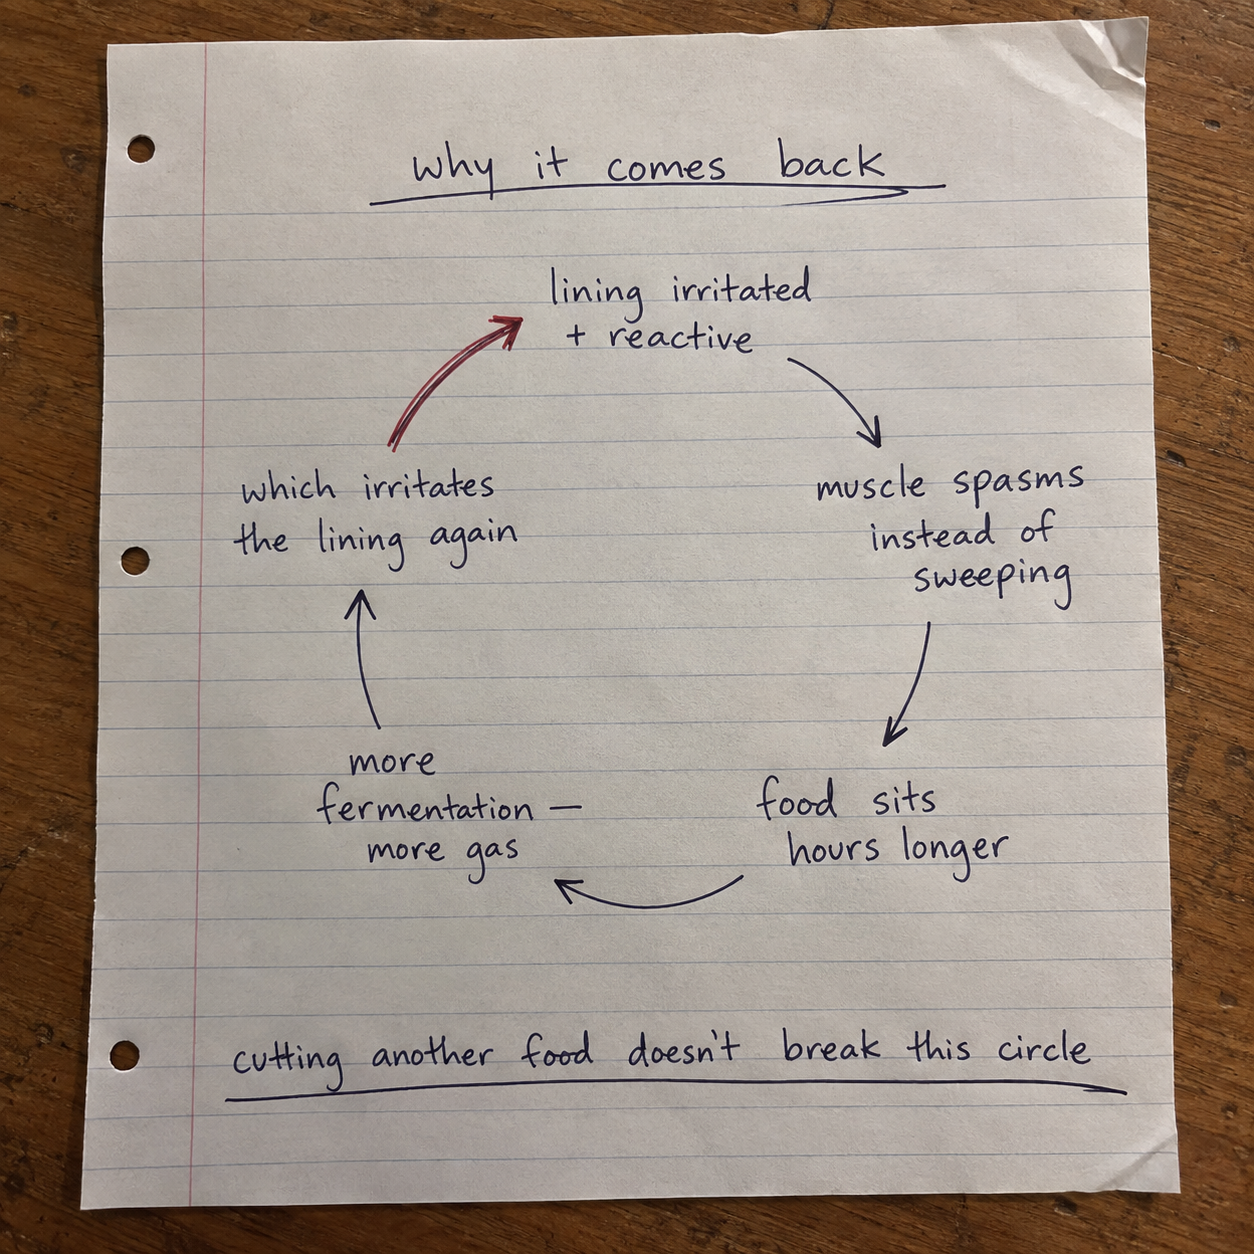 why it comes back
lining irritated
+ reactive
muscle spasms
instead of
sweeping
food sits
hours longer
more
fermentation —
more gas
which irritates
the lining again
cutting another food doesn't break this circle